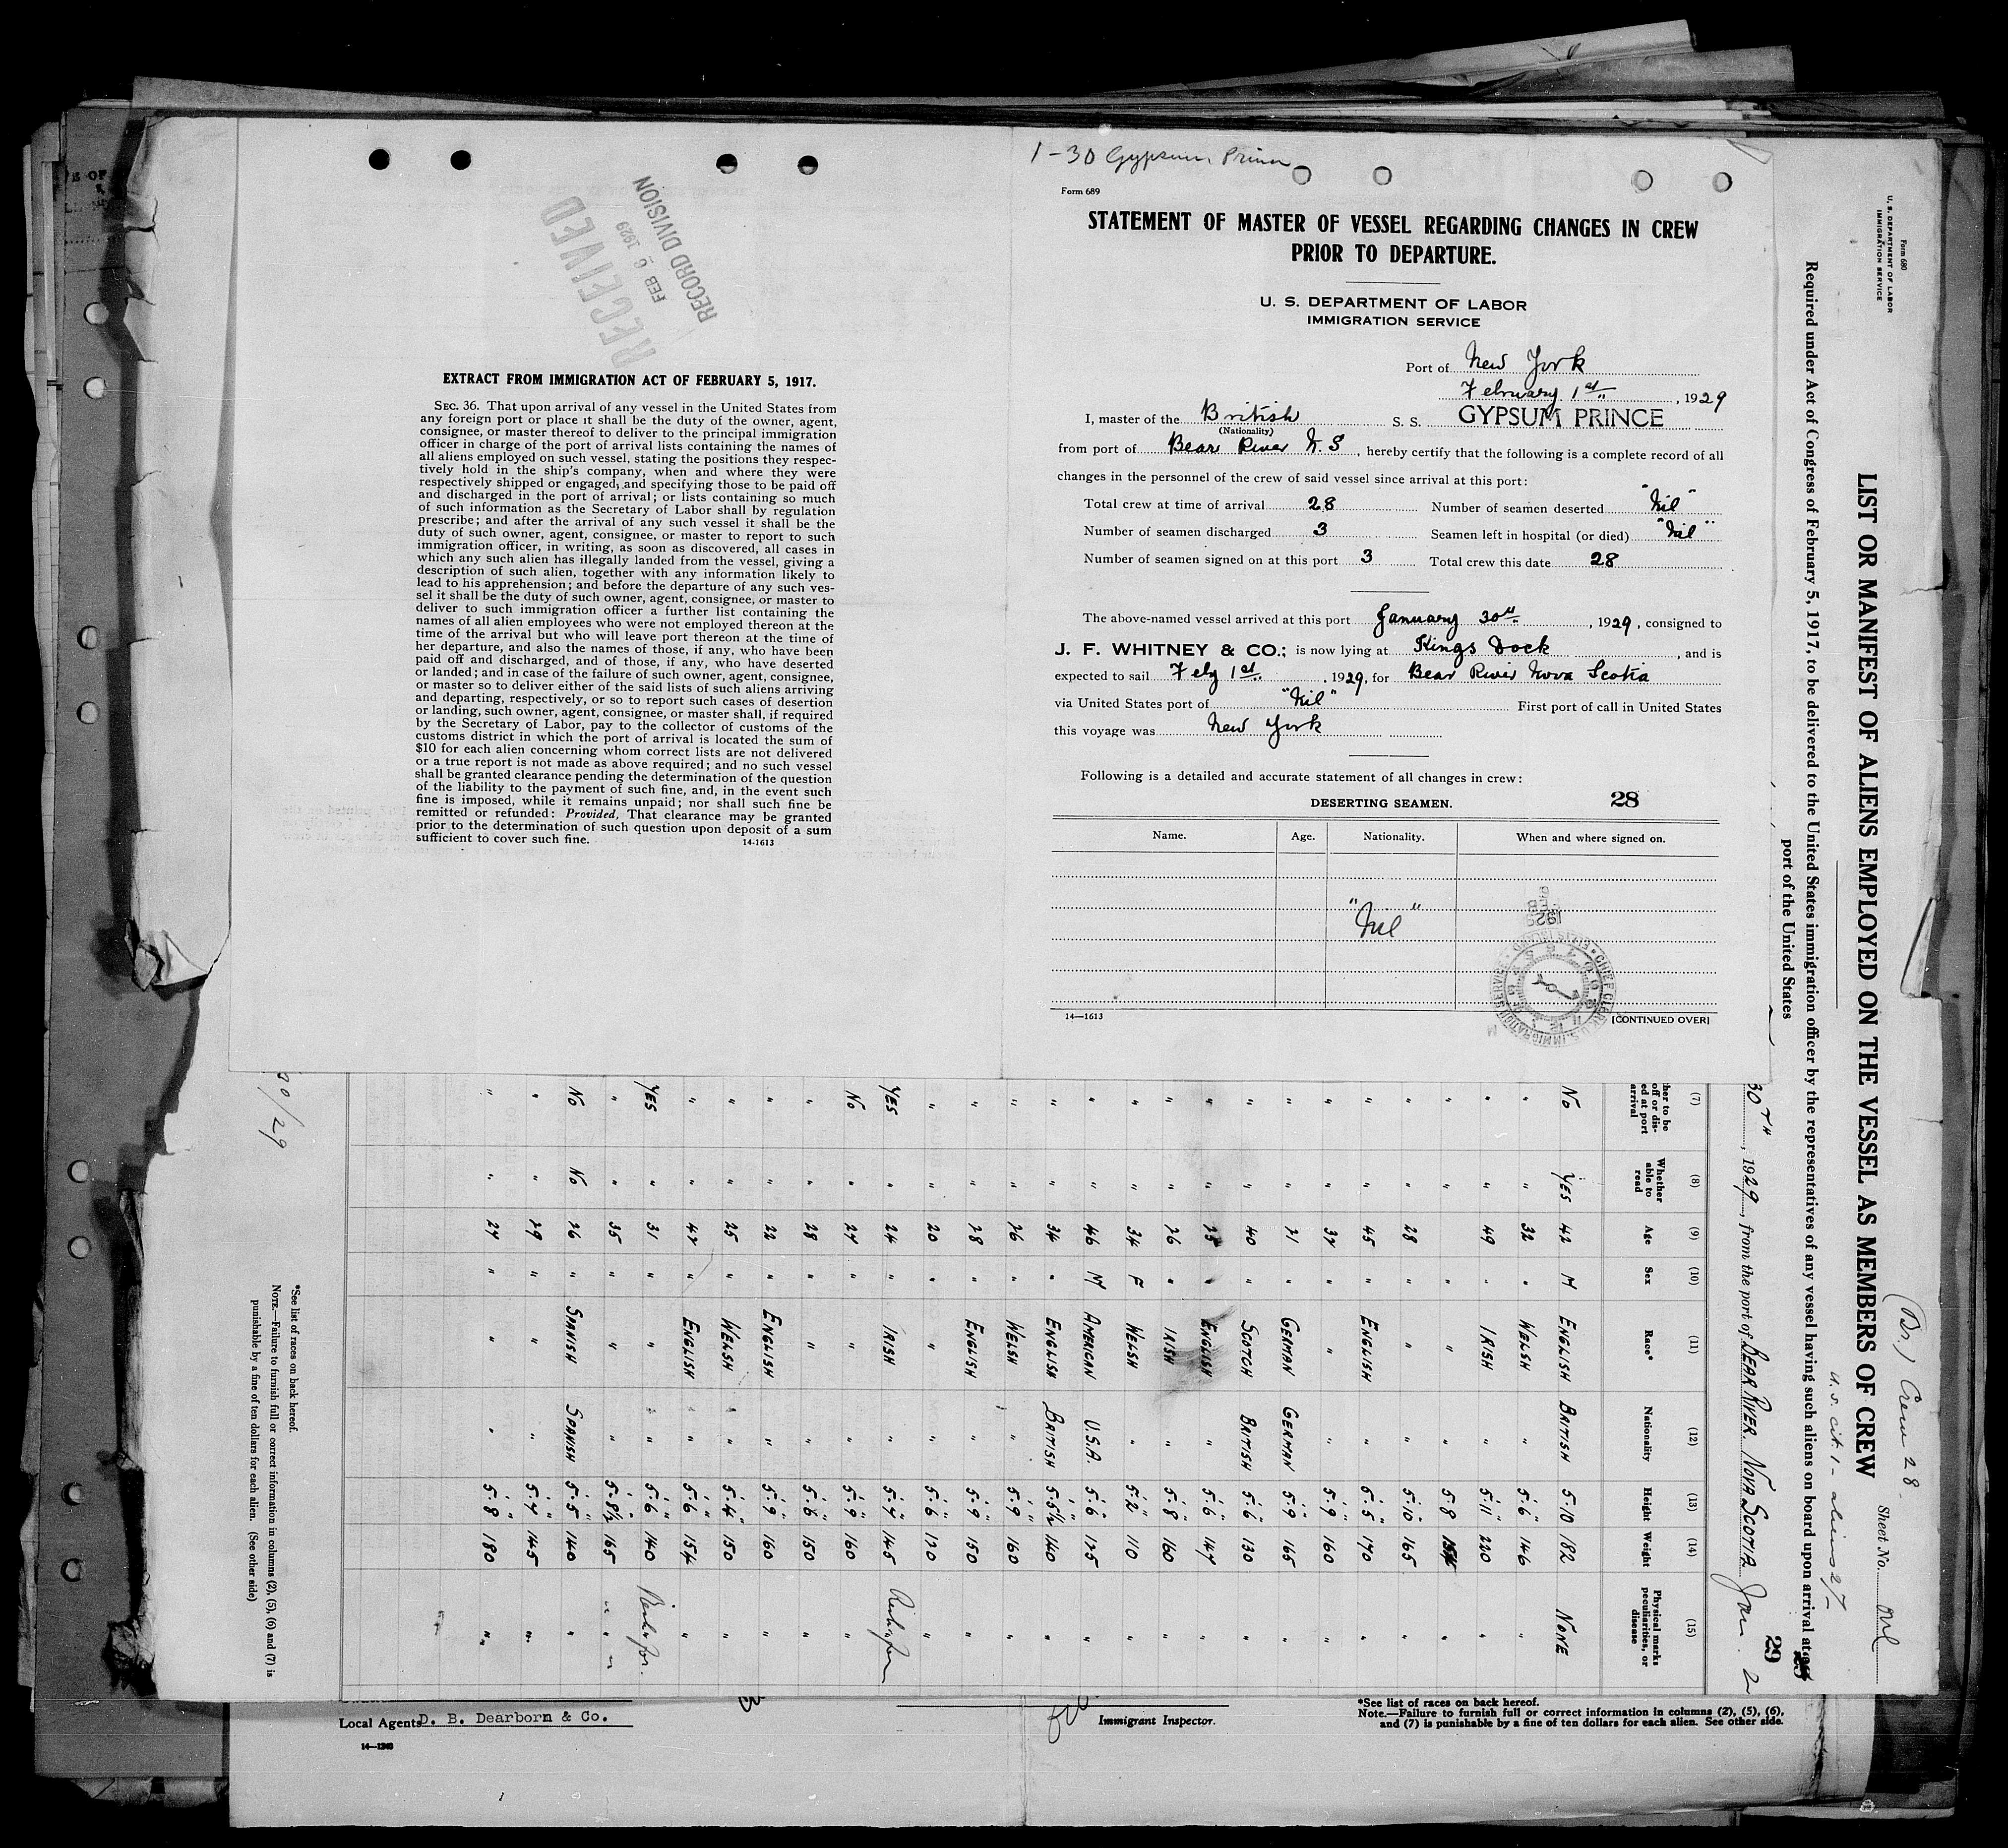 1-30 Gypsum Prince
Form 689
STATEMENT OF MASTER OF VESSEL REGARDING CHANGES IN CREW
PRIOR TO DEPARTURE.
U. S. DEPARTMENT OF LABOR
IMMIGRATION SERVICE
Port of New York
February 1st, 1929
I, master of the British S. S. GYPSUM PRINCE
(Nationality)
from port of Bear River N. S, hereby certify that the following is a complete record of all
changes in the personnel of the crew of said vessel since arrival at this port:
Total crew at time of arrival 28 Number of seamen deserted "Nil"
Number of seamen discharged 3 Seamen left in hospital (or died) "Nil"
Number of seamen signed on at this port 3 Total crew this date 28
The above-named vessel arrived at this port January 30th, 1929, consigned to
J. F. WHITNEY & CO.; is now lying at Kings Dock, and is
expected to sail Feby 1st, 1929, for Bear River Nova Scotia
via United States port of "Nil" First port of call in United States
this voyage was New York
Following is a detailed and accurate statement of all changes in crew:
DESERTING SEAMEN. 28
Name. Age. Nationality. When and where signed on.
"Nil"
14—1613 [CONTINUED OVER]
RECEIVED
FEB 6 1929
RECORD DIVISION
EXTRACT FROM IMMIGRATION ACT OF FEBRUARY 5, 1917.
SEC. 36. That upon arrival of any vessel in the United States from
any foreign port or place it shall be the duty of the owner, agent,
consignee, or master thereof to deliver to the principal immigration
officer in charge of the port of arrival lists containing the names of
all aliens employed on such vessel, stating the positions they respec-
tively hold in the ship's company, when and where they were
respectively shipped or engaged, and specifying those to be paid off
and discharged in the port of arrival; or lists containing so much
of such information as the Secretary of Labor shall by regulation
prescribe; and after the arrival of any such vessel it shall be the
duty of such owner, agent, consignee, or master to report to such
immigration officer, in writing, as soon as discovered, all cases in
which any such alien has illegally landed from the vessel, giving a
description of such alien, together with any information likely to
lead to his apprehension; and before the departure of any such ves-
sel it shall be the duty of such owner, agent, consignee, or master to
deliver to such immigration officer a further list containing the
names of all alien employees who were not employed thereon at the
time of the arrival but who will leave port thereon at the time of
her departure, and also the names of those, if any, who have been
paid off and discharged, and of those, if any, who have deserted
or landed; and in case of the failure of such owner, agent, consignee,
or master so to deliver either of the said lists of such aliens arriving
and departing, respectively, or so to report such cases of desertion
or landing, such owner, agent, consignee, or master shall, if required
by the Secretary of Labor, pay to the collector of customs of the
customs district in which the port of arrival is located the sum of
$10 for each alien concerning whom correct lists are not delivered
or a true report is not made as above required; and no such vessel
shall be granted clearance pending the determination of the question
of the liability to the payment of such fine, and, in the event such
fine is imposed, while it remains unpaid; nor shall such fine be
remitted or refunded: Provided, That clearance may be granted
prior to the determination of such question upon deposit of a sum
sufficient to cover such fine.
14-1613
Form 680
U. S. DEPARTMENT OF LABOR
IMMIGRATION SERVICE
(Br.) Crew 28
U.S. cit. 1 - aliens 27
Sheet No.
LIST OR MANIFEST OF ALIENS EMPLOYED ON THE VESSEL AS MEMBERS OF CREW
Required under Act of Congress of February 5, 1917, to be delivered to the United States immigration officer by the representatives of any vessel having such aliens on board upon arrival at
port of the United States
30TH, 1929, from the port of BEAR RIVER. NOVA SCOTIA Jan. 2
29
(7) (8) (9) (10) (11) (12) (13) (14) (15)
Whether able to read Age Sex Race* Nationality Height Weight Physical marks, peculiarities, or disease
NO YES 42 M ENGLISH BRITISH 5-10 182 NONE
" " 32 " WELSH " 5-6 146 "
" " 49 " IRISH " 5-11 220 "
" " " " 5-8 "
" " 28 " " " 5-10 165 "
" " 45 " ENGLISH " 5-5 170 "
" " 37 " " " 5-9 160 "
" " 21 " GERMAN GERMAN 5-9 165 "
" " 40 " SCOTCH BRITISH 5-6 130 "
" " " ENGLISH " 5-6 147 "
" " 26 " IRISH " 5-8 160 "
" " 34 F WELSH " 5-2 110 "
" " 46 M AMERICAN U.S.A. 5-6 175 "
" " 34 " ENGLISH BRITISH 5-5½ 140 "
" " 26 " WELSH " 5-9 160 "
" " 28 " ENGLISH " 5-9 150 "
" " 20 " " " 5-6 120 "
YES " 24 " IRISH " 5-7 145
NO " 27 " " " 5-9 160 "
" " 28 " " " 5-6 150 "
" " 22 " ENGLISH " 5-9 160 "
" " 25 " WELSH " 5-4 150 "
" " 47 " ENGLISH " 5-6 154 "
YES " 31 " " " 5-6 140
" " 35 " " " 5-8½ 165 "
NO NO 26 " SPANISH SPANISH 5-5 140 "
" " 29 " " " 5-7 145 "
" " 27 " " " 5-8 180 "
*See list of races on back hereof.
NOTE.—Failure to furnish full or correct information in columns (2), (5), (6) and (7) is
punishable by a fine of ten dollars for each alien. (See other side)
30/29
Local Agents D. B. Dearborn & Co.
14—1240
Immigrant Inspector.
*See list of races on back hereof.
Note.—Failure to furnish full or correct information in columns (2), (5), (6),
and (7) is punishable by a fine of ten dollars for each alien. See other side.